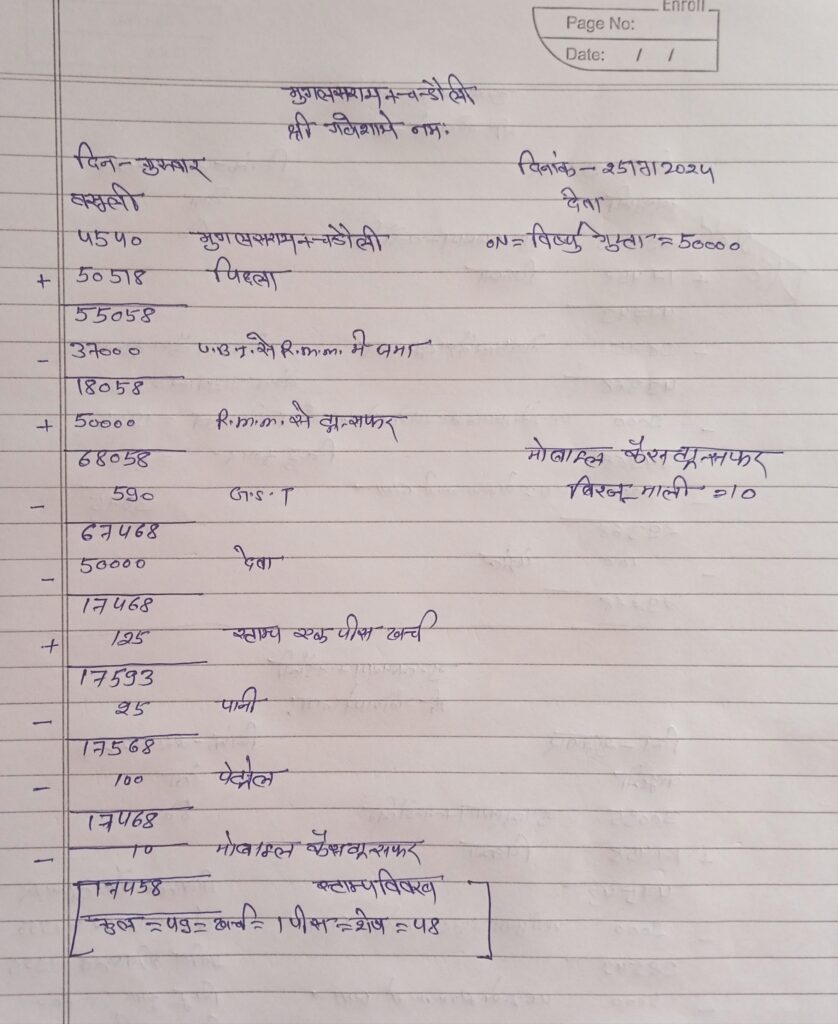 Enroll
Page No:
Date: / /
मुगलसराय + चन्डौली
श्री गणेशाये नमः
दिन - गुरूवार दिनांक - 25/7/2024
वसुली देवा
4540 मुगलसराय + चडौली ON = विष्णु गुप्ता = 50000
+ 50518 पिछला
55058
- 37000 U.B.I. से R.m.m. मे जमा
18058
+ 50000 R.m.m. से ट्रान्सफर
68058 मोबाइल कैस ट्रान्सफर
- 590 G.S.T विरजू माली = 10
67468
- 50000 देवा
17468
+ 125 स्टाम्प एक पीस खर्च
17593
- 25 पानी
17568
- 100 पेट्रोल
17468
- 10 मोबाइल कैस ट्रान्सफर
17458 स्टाम्प विवरण
कुल = 49 = खर्च = 1 पीस = शेष = 48